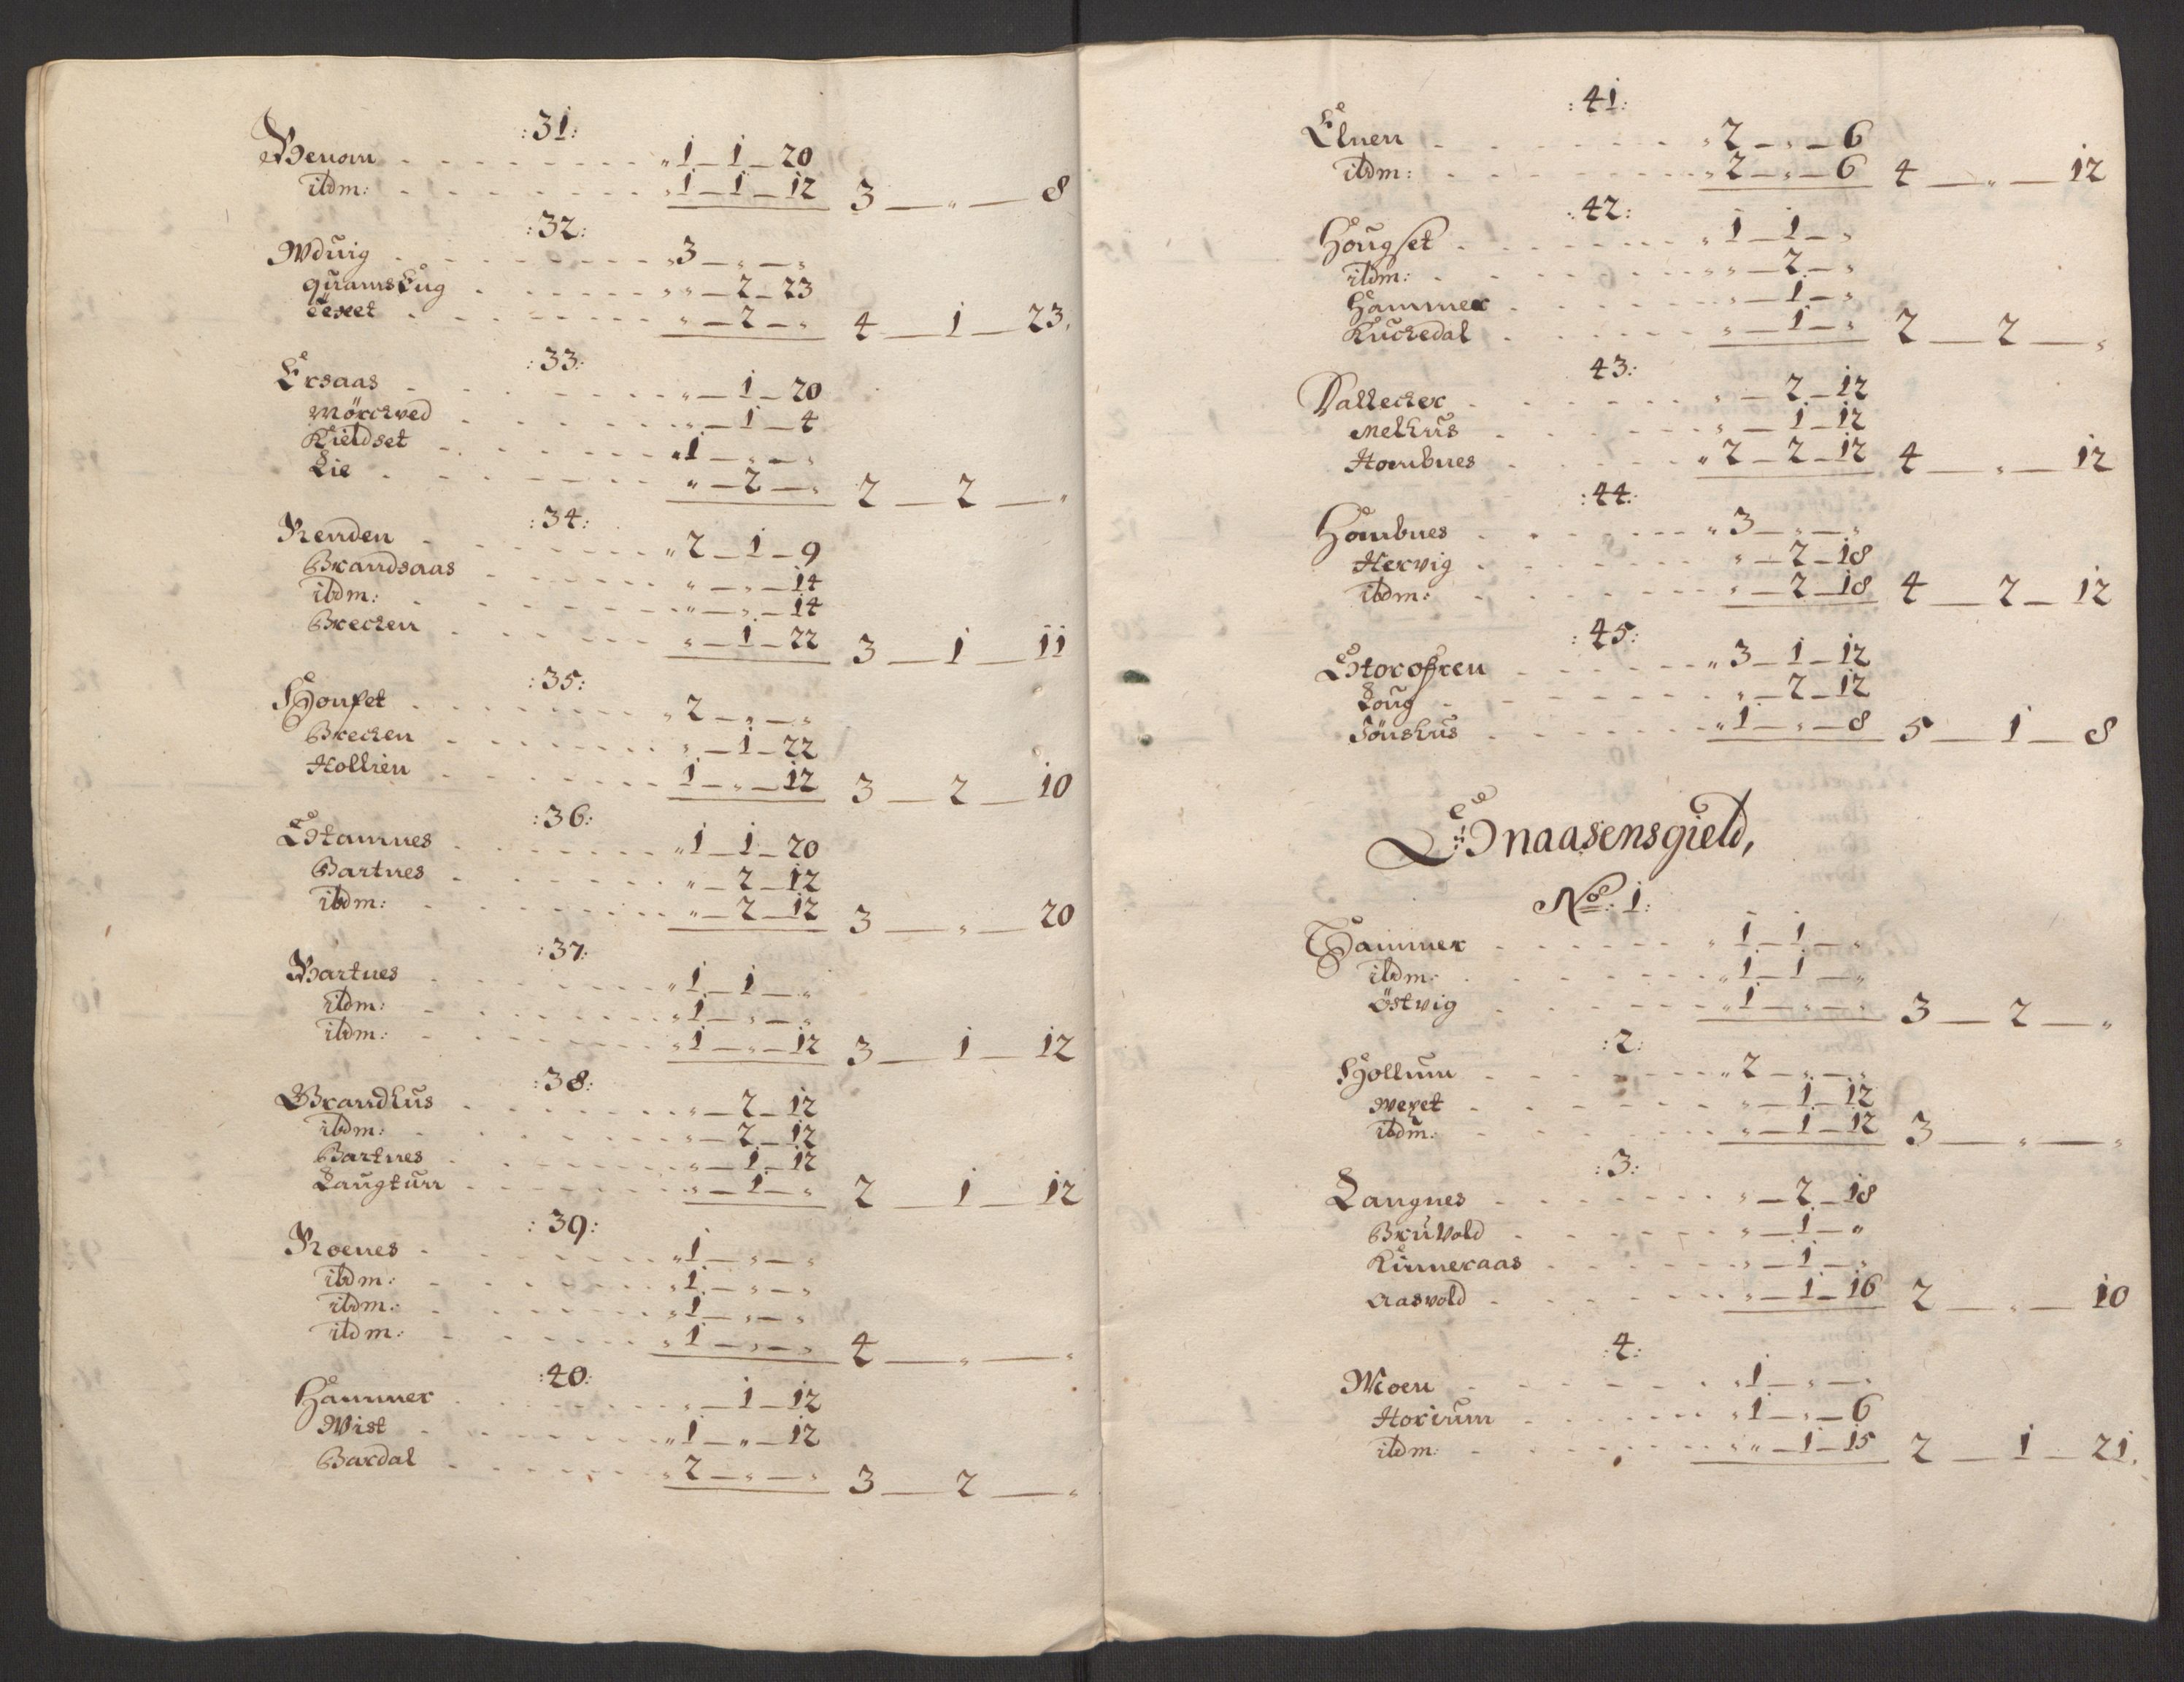 :31:
Benom - - - - - - - - „ 1 — 1 — 20
ibdm: - - - - - - - - „ 1 — 1 — 12 3 — „ — 8
:32:
Wduig - - - - - - - „ 3 — „ — „
quamsEug - - - - - - „ „ — 2 — 23
- - - - - - - „ — 2 — „ 4 — 1 — 23.
:33:
Ersaas - - - - - - - „ — 1 — 20
Mörchved - - - - - - „ — 1 — 4
Kieldset - - - - - - „ 1 — „ — „
Lie - - - - - - - „ — 2 — „ 2 — 2 — „
:34:
Renden - - - - - - - „ 2 — 1 — 9
Brandsaas - - - - - - „ — „ — 14
ibdm: - - - - - - - „ — „ — 14
Brechen - - - - - - „ — 1 — 22 3 — 1 — 11
:35:
Housset - - - - - - - „ 2 — „ — „
Brechen - - - - - - „ — 1 — 22
Hollien - - - - - - 1 — „ — 12 3 — 2 — 10
:36:
Stamnes - - - - - - „ 1 — 1 — 20
Bartnes - - - - - - „ — 2 — 12
ibdm: - - - - - - „ — 2 — 12 3 — „ — 20
:37:
Bartnes - - - - - - „ 1 — 1 — „
ibdm: - - - - - - „ 1 — „ — „
ibdm: - - - - - - „ 1 — „ — 12 3 — 1 — 12
:38:
Brandhus - - - - - - „ — 2 — 12
ibdm: - - - - - - „ — 2 — 12
Bartnes - - - - - - „ — 1 — 12
Langtun - - - - - - „ — 1 — „ 2 — 1 — 12
:39:
Roenes - - - - - - „ 1 — „ — „
ibdm: - - - - - - „ 1 — „ — „
ibdm: - - - - - - „ 1 — „ — „
ibdm: - - - - - - „ 1 — „ — „ 4 — „ — „
:40:
Hammer - - - - - - „ — 1 — 12
Wist - - - - - - „ 1 — „ — 12
Bardal - - - - - - „ 2 — „ — „ 3 — 2 — „
:41:
Elnen - - - - - - „ 2 — „ — 6
ibdm: - - - - - - „ 2 — „ — 6 4 — „ — 12
:42:
Hougset - - - - - - „ 1 — 1 — „
ibdm: - - - - - - „ „ — 2 — „
Hammer - - - - - - „ — 1 — „
Kuchedal - - - - - „ — 1 — „ 2 — 2 — „
:43:
Vallecher - - - - - „ — 2 — 12
Melhus - - - - - „ — 1 — 12
Hombnes - - - - - „ 2 — 2 — 12 4 — „ — 12
:44:
Hombnes - - - - - „ 3 — „ — „
Hervig - - - - - - „ — 2 — 18
ibdm: - - - - - - „ — 2 — 18 4 — 2 — 12
:45:
Storossen - - - - - „ 3 — 1 — 12
Loug - - - - - - „ — 2 — 12
Jönshus - - - - - „ 1 — „ — 8 5 — 1 — 8
Snaasensgield,
No: 1:
Hammer - - - - - - „ 1 — 1 — „
ibdm: - - - - - - „ 1 — 1 — „
Östvig - - - - - - „ 1 — „ — „ 3 — 2 — „
:2:
Hollum - - - - - - „ 2 — „ — „
Wexet - - - - - - „ — 1 — 12
ibdm: - - - - - - „ — 1 — 12 3 — „ — „
:3:
Langnes - - - - - - „ — 2 — 18
Bruvold - - - - - - „ — 1 — „
Kinneraas - - - - - „ — 1 — „
Aasvold - - - - - - „ — 1 — 16 2 — „ — 10
:4:
Moen - - - - - - „ 1 — „ — „
Horium - - - - - - „ 1 — „ — 6
ibdm: - - - - - - „ „ — 1 — 15 2 — 1 — 21.